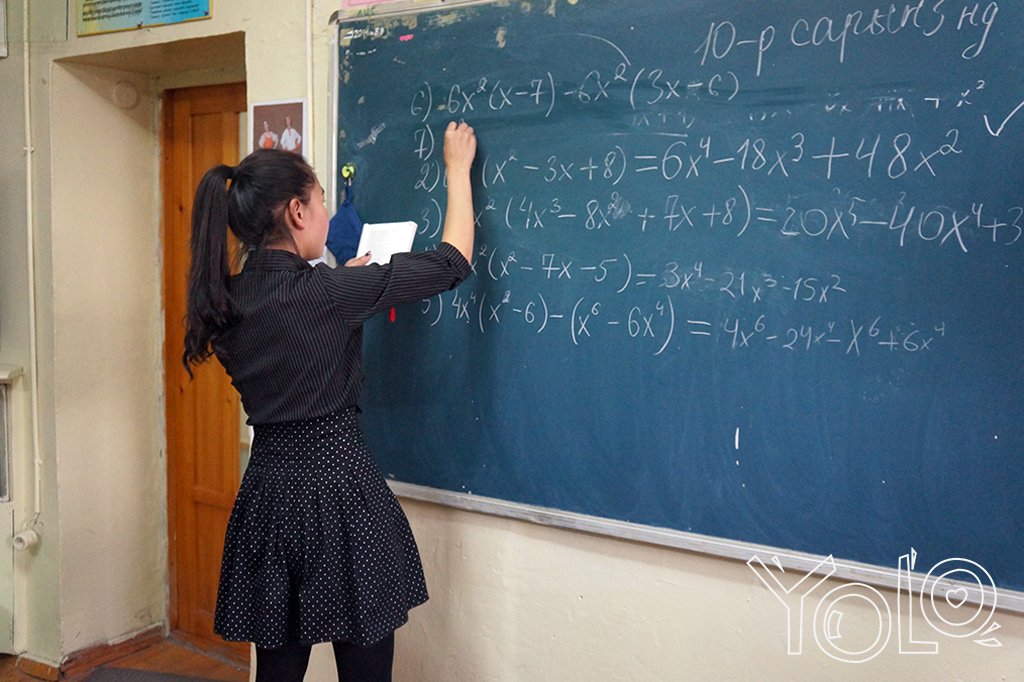 10-р сарын 3 нд
6) 6x²(x-7) - 6x²(3x-6)
7)
2) (x² - 3x + 8) = 6x⁴ - 18x³ + 48x²
3) x²(4x³ - 8x² + 7x + 8) = 20x⁵ - 40x⁴ + 3
x²(x² - 7x - 5) = 3x⁴ - 21x³ - 15x²
5) 4x⁴(x² - 6) - (x⁶ - 6x⁴) = 4x⁶ - 24x⁴ - x⁶ + 6x⁴
YOLO